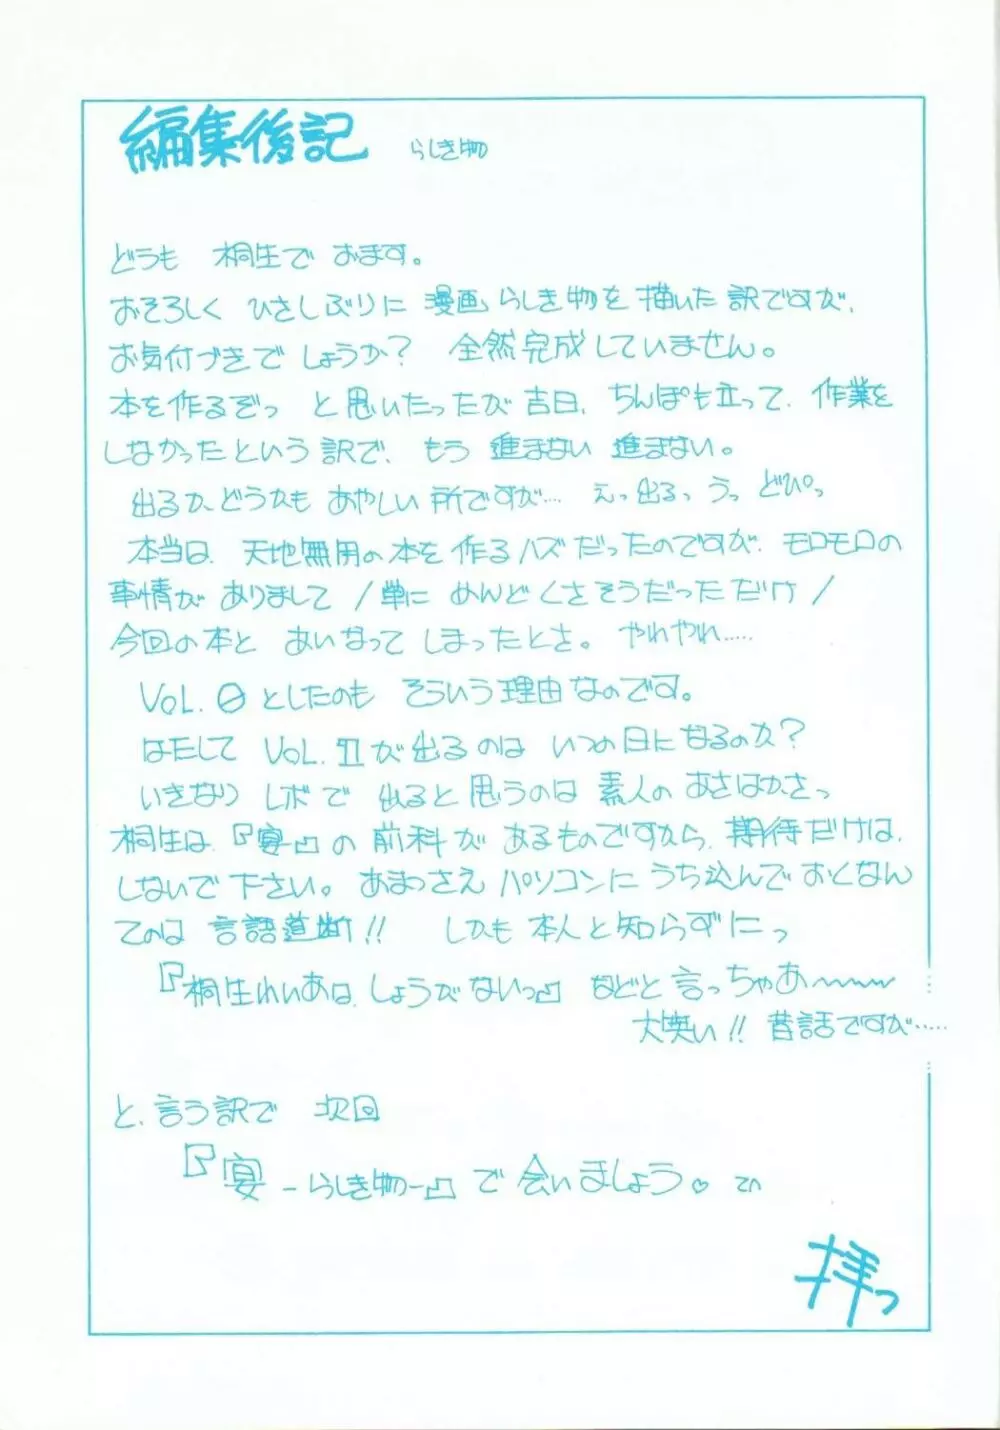 編集後記 らしき物
どうも 桐生で おます。
おそろしく ひさしぶりに 漫画らしき物を 描いた 訳ですが、
お気付づきで しょうか? 全然完成していません。
本を作るぞっ と思いたったが吉日、ちんぽも立って、作業を
しなかったという訳で、もう 進まない 進まない。
出るか、どうかも あやしい所ですが… えっ出るっ うっ どぴっ
本当は、天地無用の本を作るハズだったのですが、モロモロの
事情が ありまして /単に めんどくさそうだっただけ/
今回の本と あいなって しまったとさ。 やれやれ……
VOL.0としたのも そういう理由なのです。
はたして VOL.Ⅱが出るのは いつの日になるのか?
いきなり レボで 出ると思うのは 素人の あさはかさっ
桐生は、『宴』の前科が あるものですから、期待だけは、
しないで下さい。あまつさえ パソコンに うち込んで おくなん
てのは 言語道断!! しかも 本人と知らずにっ
『桐生れいあは、しょうがないっ』などと言っちゃあ〜〜〜
大笑い!! 昔話ですが……
と、言う訳で 次回
『宴 -らしき物-』で 会いましょう♡ てへ
拝っ